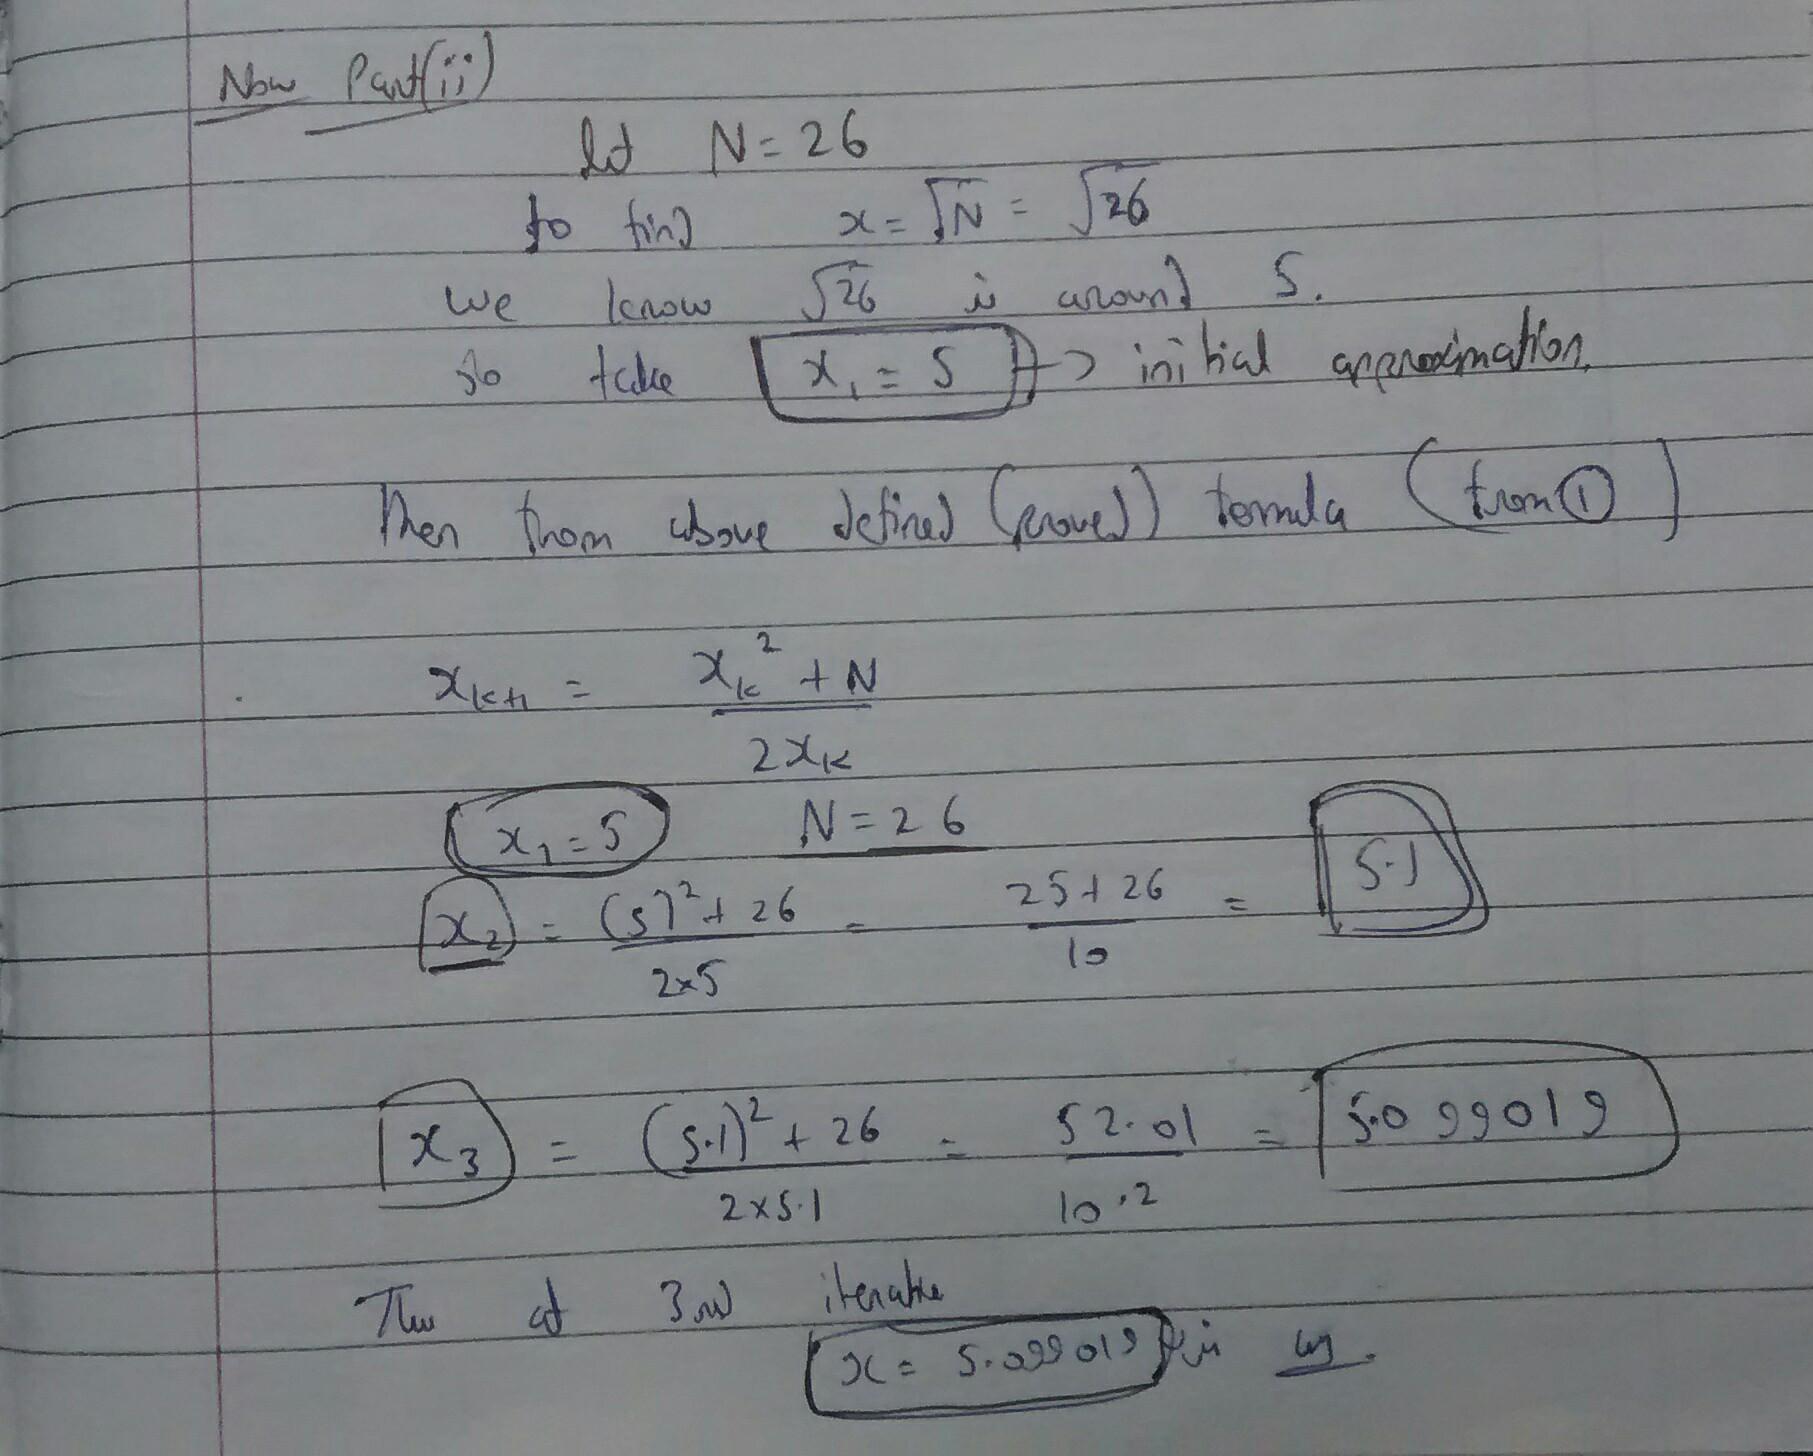 Now Part(ii)
let N = 26
to find x = √N = √26
we know √26 is around 5.
so take x₁ = 5 → initial approximation.
Then from above defined (proved) formula (from ①)
xₖ₊₁ = xₖ² + N / 2xₖ
x₁ = 5 N = 26
x₂ = (5)² + 26 / 2×5 = 25 + 26 / 10 = 5.1
x₃ = (5.1)² + 26 / 2×5.1 = 52.01 / 10.2 = 5.099019
Thus at 3rd iterative
x = 5.099019 is